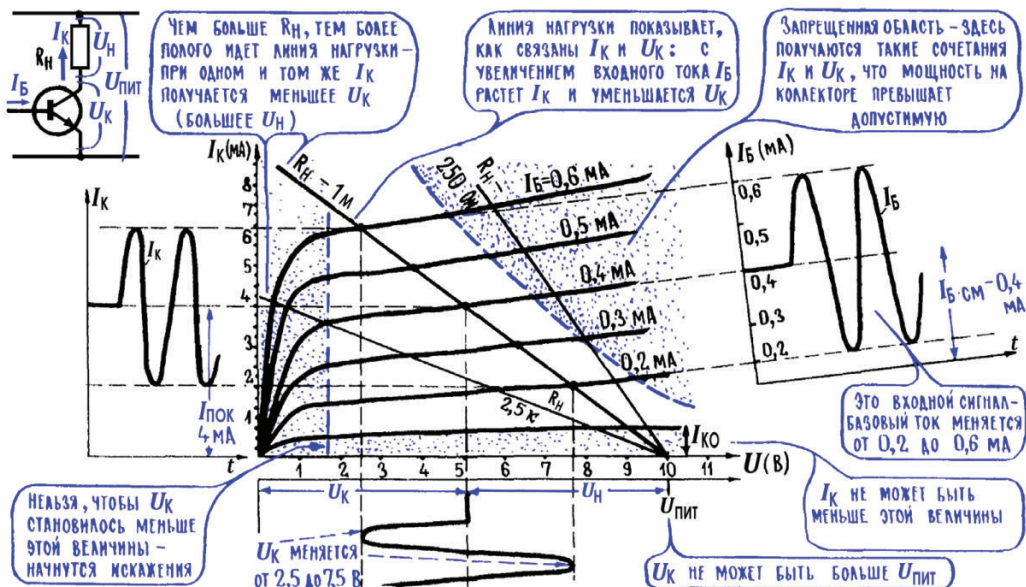 Iк
Rн
Uн
Uпит
Iб
Uк
Чем больше Rн, тем более
полого идет линия нагрузки –
при одном и том же Iк
получается меньшее Uк
(большее Uн)
Линия нагрузки показывает,
как связаны Iк и Uк: с
увеличением входного тока Iб
растет Iк и уменьшается Uк
Запрещенная область – здесь
получаются такие сочетания
Iк и Uк, что мощность на
коллекторе превышает
допустимую
Iк
Iк
Iпок
4 мА
t
Iк (мА)
8
7
6
5
4
3
2
1
Rн – 1м
Rн –
250 Ом
Iб=0,6 мА
0,5 мА
0,4 мА
0,3 мА
0,2 мА
Rн
2,5 к
Iко
1 2 3 4 5 6 7 8 9 10 11
U(В)
Iб (мА)
0,6
0,5
0,4
0,3
0,2
Iб
Iб·см – 0,4
мА
t
Это входной сигнал-
базовый ток меняется
от 0,2 до 0,6 мА
Нельзя, чтобы Uк
становилось меньше
этой величины –
начнутся искажения
Uк
Uн
Uпит
Uк меняется
от 2,5 до 7,5 В
Iк не может быть
меньше этой величины
Uк не может быть больше Uпит